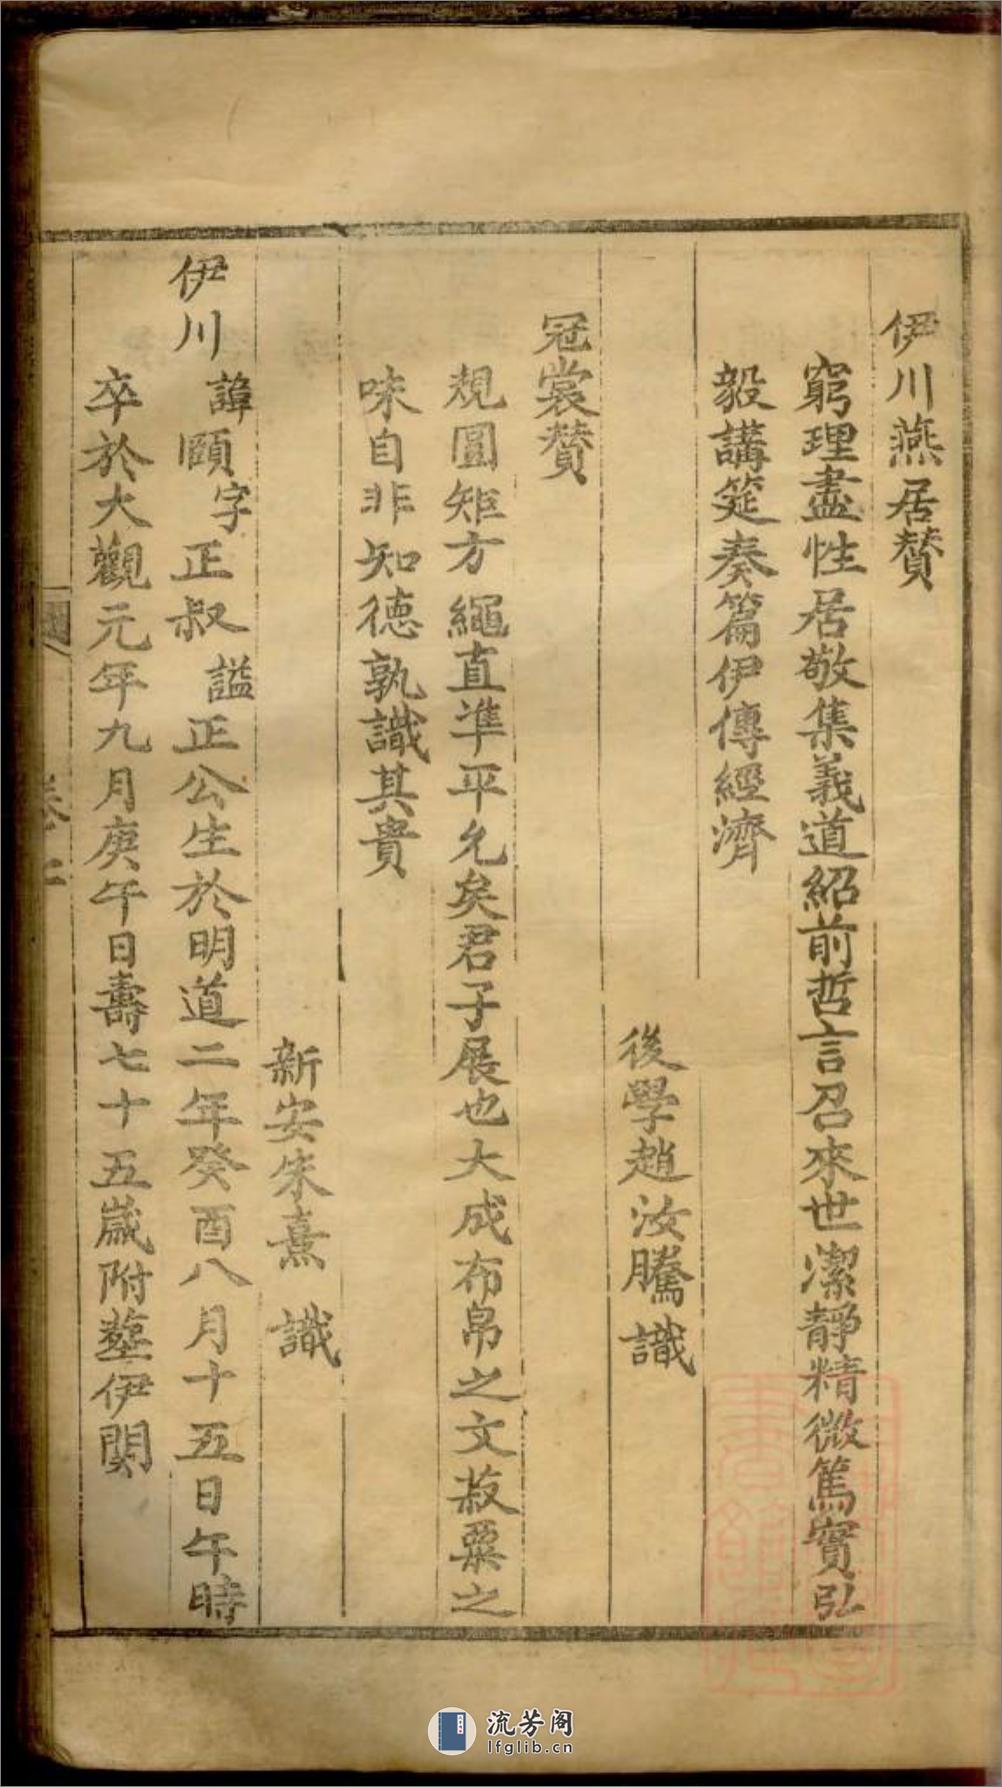 伊川燕居贊
窮理盡性居敬集義道紹前哲言召來世潔靜精微篤實弘
毅講筵奏篇伊傳經濟
後學趙汝騰識
冠裳贊
規圓矩方繩直準平允矣君子展也大成布帛之文菽粟之
味自非知德孰識其貴
新安朱熹識
伊川諱頤字正叔謚正公生於明道二年癸酉八月十五日午時
卒於大觀元年九月庚午日壽七十五歲附塟伊闕
流芳阁
lfglib.cn